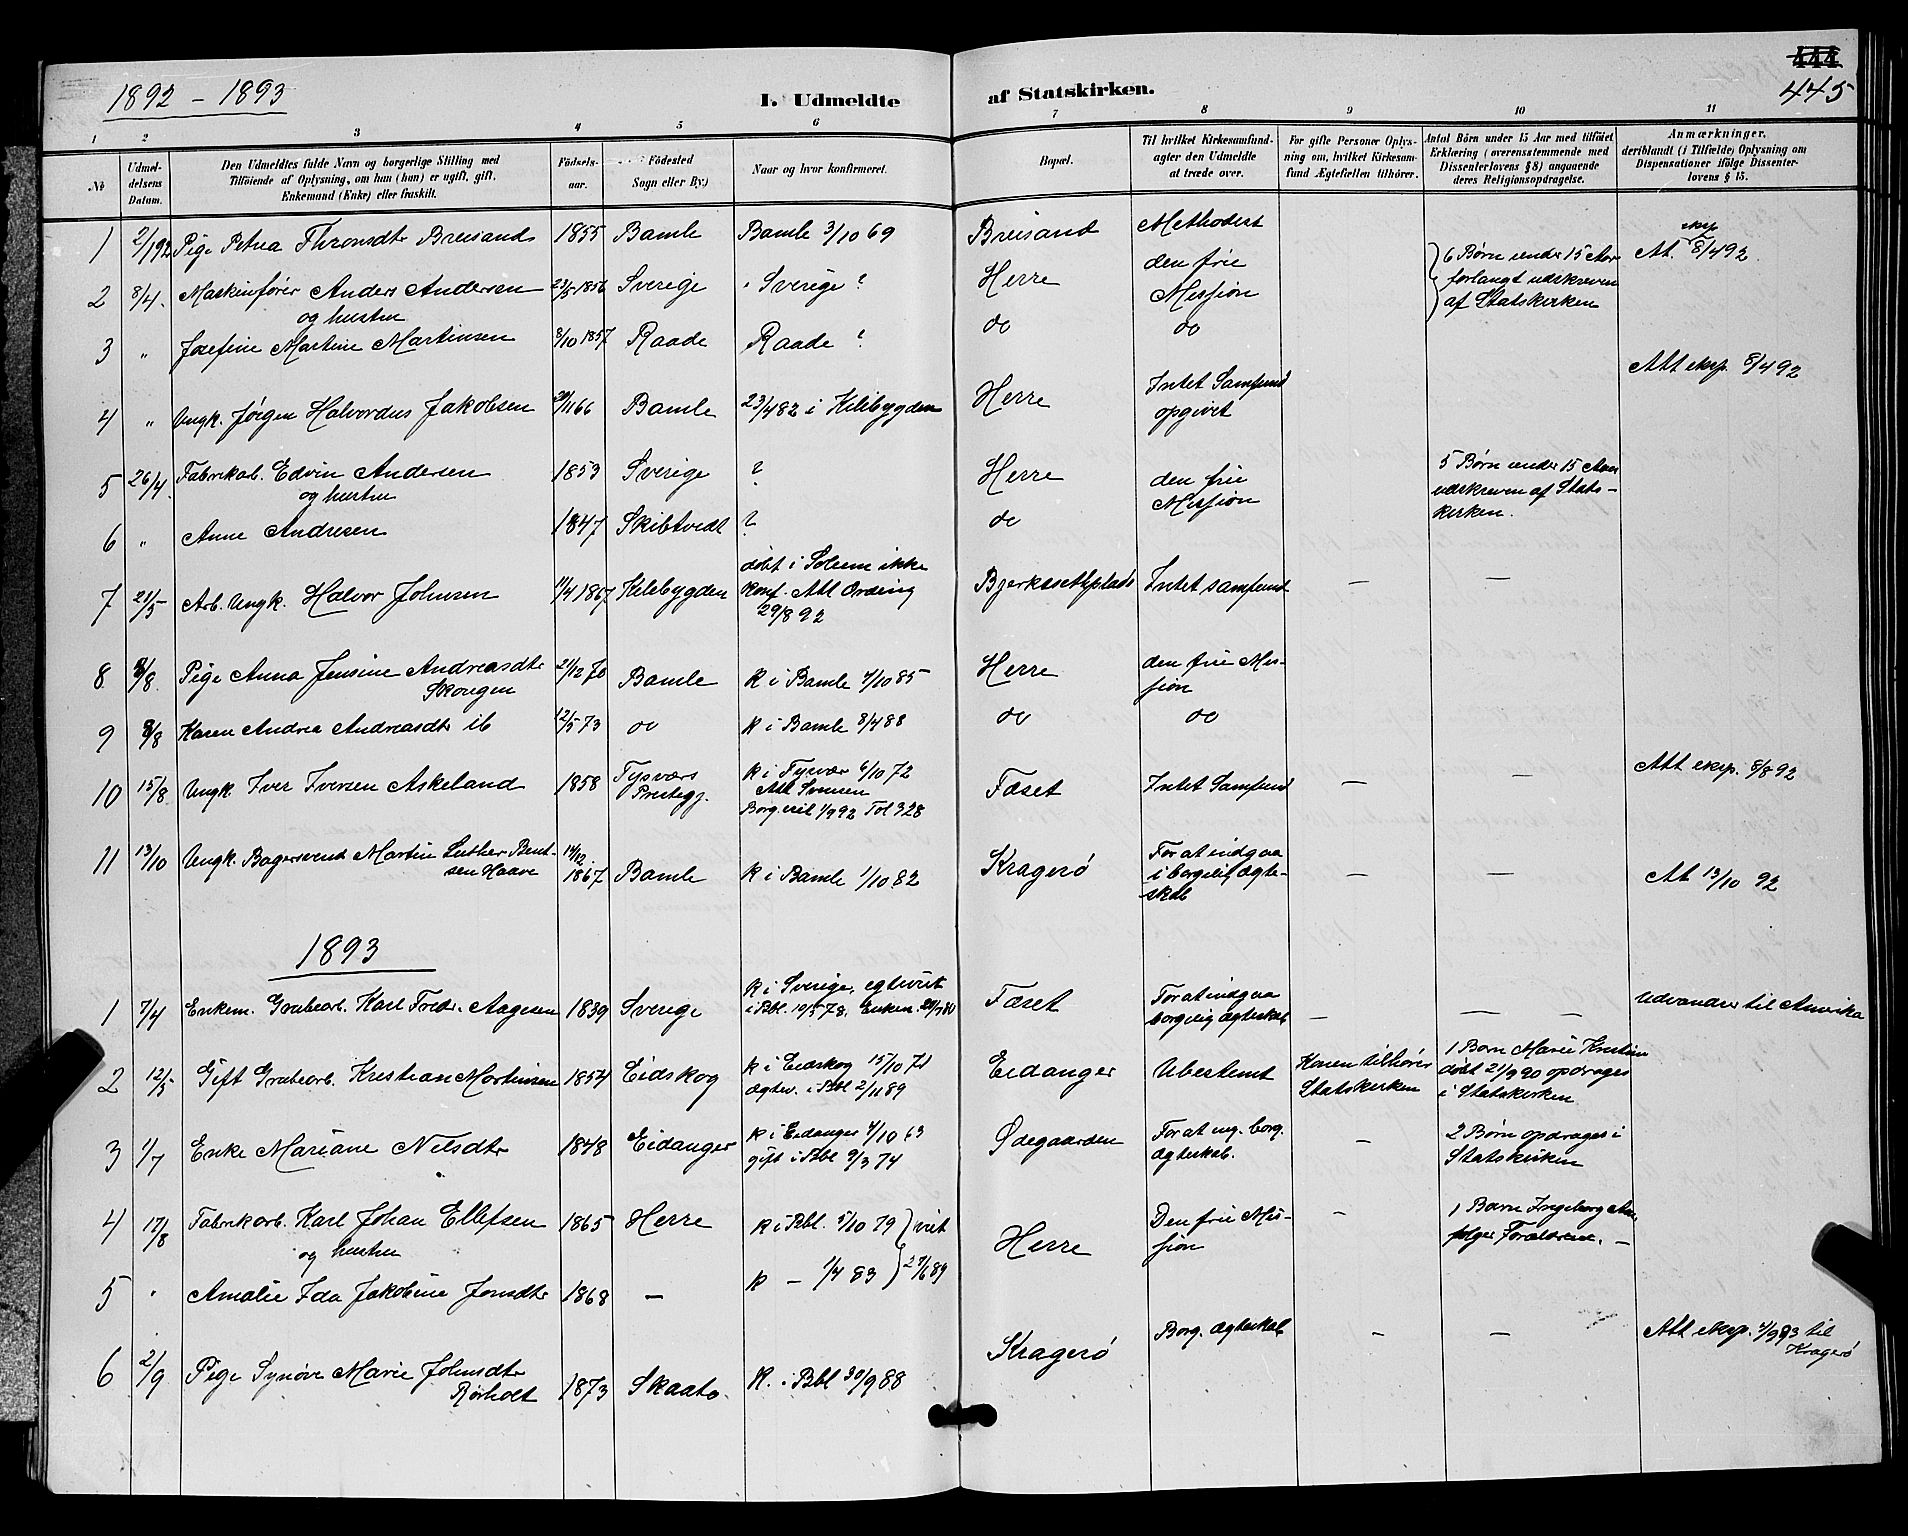 1892 - 1893
I. Udmeldte af Statskirken.
444
445
1 2 3 4 5 6 7 8 9 10 11
No
Udmeldelsens Datum.
Den Udmeldtes fulde Navn og borgerlige Stilling med
Tilföiende af Oplysning, om han (hun) er ugift, gift,
Enkemand (Enke) eller fraskilt.
Födselsaar.
Födested
Sogn eller By.)
Naar og hvor konfirmeret.
Bopæl.
Til hvilket Kirkesamfund
agter den Udmeldte
at træde over.
For gifte Personer Oplysning om, hvilket Kirkesamfund Ægtefællen tilhörer.
Antal Börn under 15 Aar med tilföiet
Erklæring (overensstemmende med
Dissenterlovens § 8) angaaende
deres Religionsopdragelse.
Anmærkninger,
deriblandt (i Tilfælde) Oplysning om
Dispensationer ifölge Dissenterlovens § 15.
1 2/1 92 Pige Petrea Thronsdtr Breisand 1855 Bamle Bamle 3/10 69 Breisand Methodist At. eksp 8/4 92.
2 8/4. Maskinfører Anders Andersen 1856 Sverige Sverige ? Herre den frie Missjon 6 Børn under 15 Aar
forlangt udskreven
af Statskirken
og hustru
3 " Josefine Martine Martinsen 8/10 1857 Raade Raade ? do do
Att eksp. 8/4 92
4 " Ungk. Jørgen Halvordus Jakobsen 66 Bamle 23/4 82 i Kilebygden Herre Intet Samfund
opgivet
5 26/4. Fabrikarb. Edvin Andersen 1853 Sverige ? Herre den frie
Missjon 5 Børn under 15 Aar
udskreven af Stats-
kirken.
og hustru
6 " Anne Andresen 1847 Skibtvedt ? do
7 21/5 Arb. Ungk. Halvor Johnsen 11/4 1867 Kilebygden døbt i Solum ikke
konf. Att Ording
29/8 92 Bjerksætplads Intet samfund — —
8 Pige Anna Jensine Andreasdtr
Skougen 21/12 70 Bamle k i Bamle 4/10 85 Herre den frie Mis-
sjon
9 Karen Andrea Andreasdtr ib 12/5 73 do k i Bamle 8/4 88 do do
10 15/8 Ungk. Iver Iversen Askeland 1858 Tysværs
Prestegj. k i Tysvær 6/10 72
Borg. 1/9 92 328 Fæset Intet Samfund — — Att eksp. 8/8 92
11 13/10 Ungk. Bagersvend Martin Luther Bent-
sen Haave 14/12. 1867 Bamle k i Bamle 1/10 82 Kragerø For at indgaa
i borgelig Ægte-
skab — — At 13/10 92
1893
1 7/4 Enkem. Grubearb. Karl Fredr. Aagesen 1839 Sverige k i Sverige, egteviet
i Bbl. 10/5 78. Enkem. Fæset For at indgaa
borgelig Ægteskab — — — Udvandrer til Amerika
2 12/5 Gift Grubearb. Kristian Martinsen 1857 Eidskog k i Eidskog 15/10 71
Ægtev. i Bbl 2/11 89 Eidanger Ubestemt Konen tilhører
Statskirken 1 Barn Marie Kristine
døbt 21/9 90 opdrages
i Statskirken
3 1/7 Enke Mariane Nilsdtr 1848 Eidanger k i Eidanger 4/10 63
gift i Bbl 9/3 74 Ødegaarden For at ing. borg.
Ægteskab. — 2 Børn opdrages i
Statskirken
4 17/8 Fabrikarb. Karl Johan Ellefsen 1865 Herre k i Bbl. 5/10 79 } viet Herre Den frie Mis-
sjon — 1 Barn Ingeborg
følger Forældrene. —
og hustru
5 " Amalie Ida Jakobine Jonsdtr 1868 — k — 1/4 83 } 89
6 2/9 Pige Synøve Marie Johnsdtr
Rørholt 1873 Skaatø. K. i Bbl 30/9 88 Kragerø Borg. Ægteskab — — Att eksp. 4/9 93 til
Kragerø